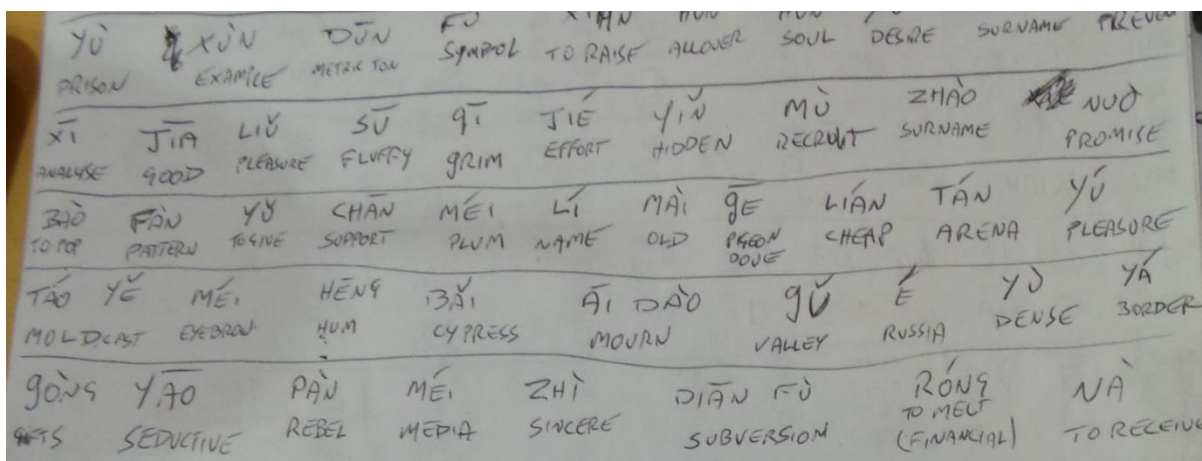 YÙ XÙN DŪN FÚ XIĀN HÚN HÚN
PRISON EXAMPLE METRIC TON SYMBOL TO RAISE ALLOVER SOUL DESIRE SURNAME PREVEN
XĪ JĪA LIǓ SŪ QĪ JIÉ YǏN MÙ ZHÀO NUÒ
ANALYSE GOOD PLEASURE FLUFFY GRIM EFFORT HIDDEN RECRUIT SURNAME PROMISE
BÀO FÀN YǓ CHĀN MÉI LÍ MÀI GĒ LIÁN TÁN YÚ
TO POP PATTERN TO GIVE SUPPORT PLUM NAME OLD PIGEON DOVE CHEAP ARENA PLEASURE
TÁO YĚ MÉI HĒNG BǍI ĀI DÀO GǓ É YÙ YÁ
MOLD, CAST EYEBROW HUM CYPRESS MOURN VALLEY RUSSIA DENSE BORDER
GÒNG YĀO PÀN MÉI ZHÌ DIĀN FÙ RÓNG NÀ
SEDUCTIVE REBEL MEDIA SINCERE SUBVERSION TO MELT (FINANCIAL) TO RECEIVE